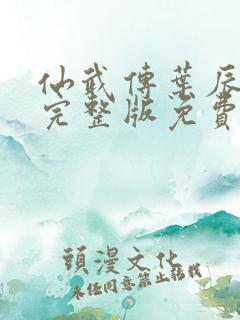 仙武傳葉辰
完整版免費
頭漫文化
未经同意禁止转载